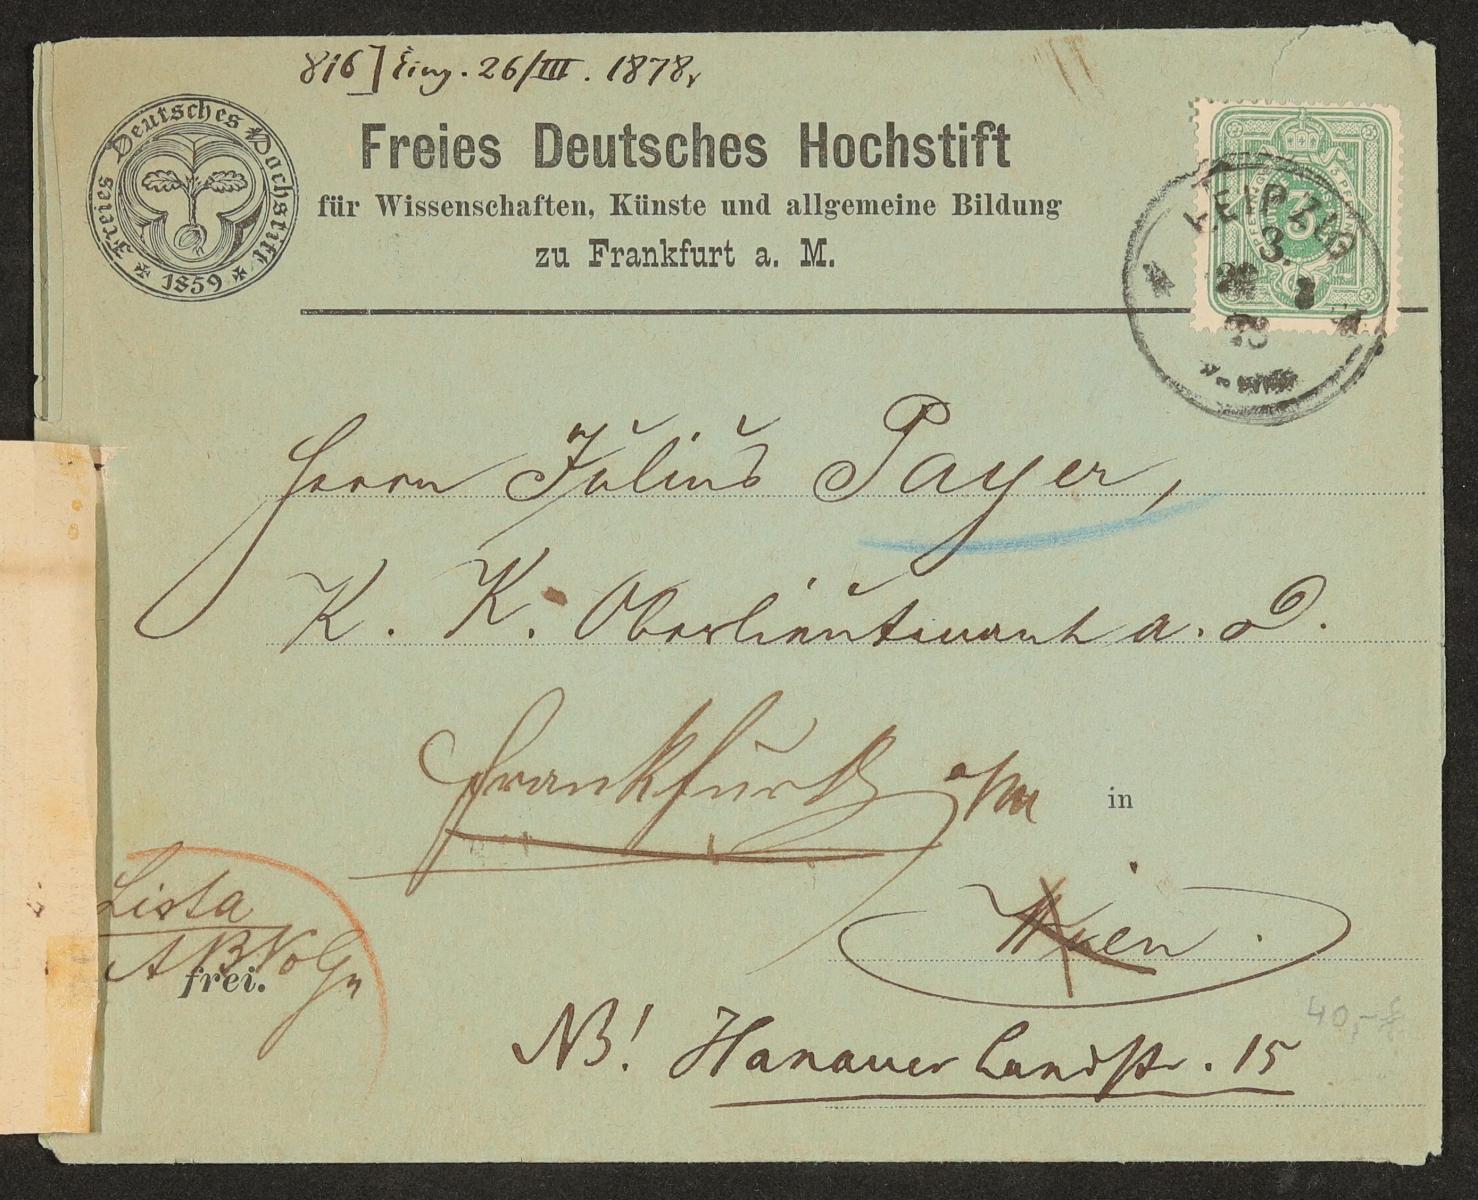 816] Eing. 26/III. 1878,
Freies Deutsches Hochstift
1859
Freies Deutsches Hochstift
für Wissenschaften, Künste und allgemeine Bildung
zu Frankfurt a. M.
3
LEIPZIG
3.
Herrn Julius Payer,
K. K. Oberlieutenant a. D.
Frankfurt a/M
in
Wien.
Lista
frei.
NB! Hanauer Landstr. 15
40,-